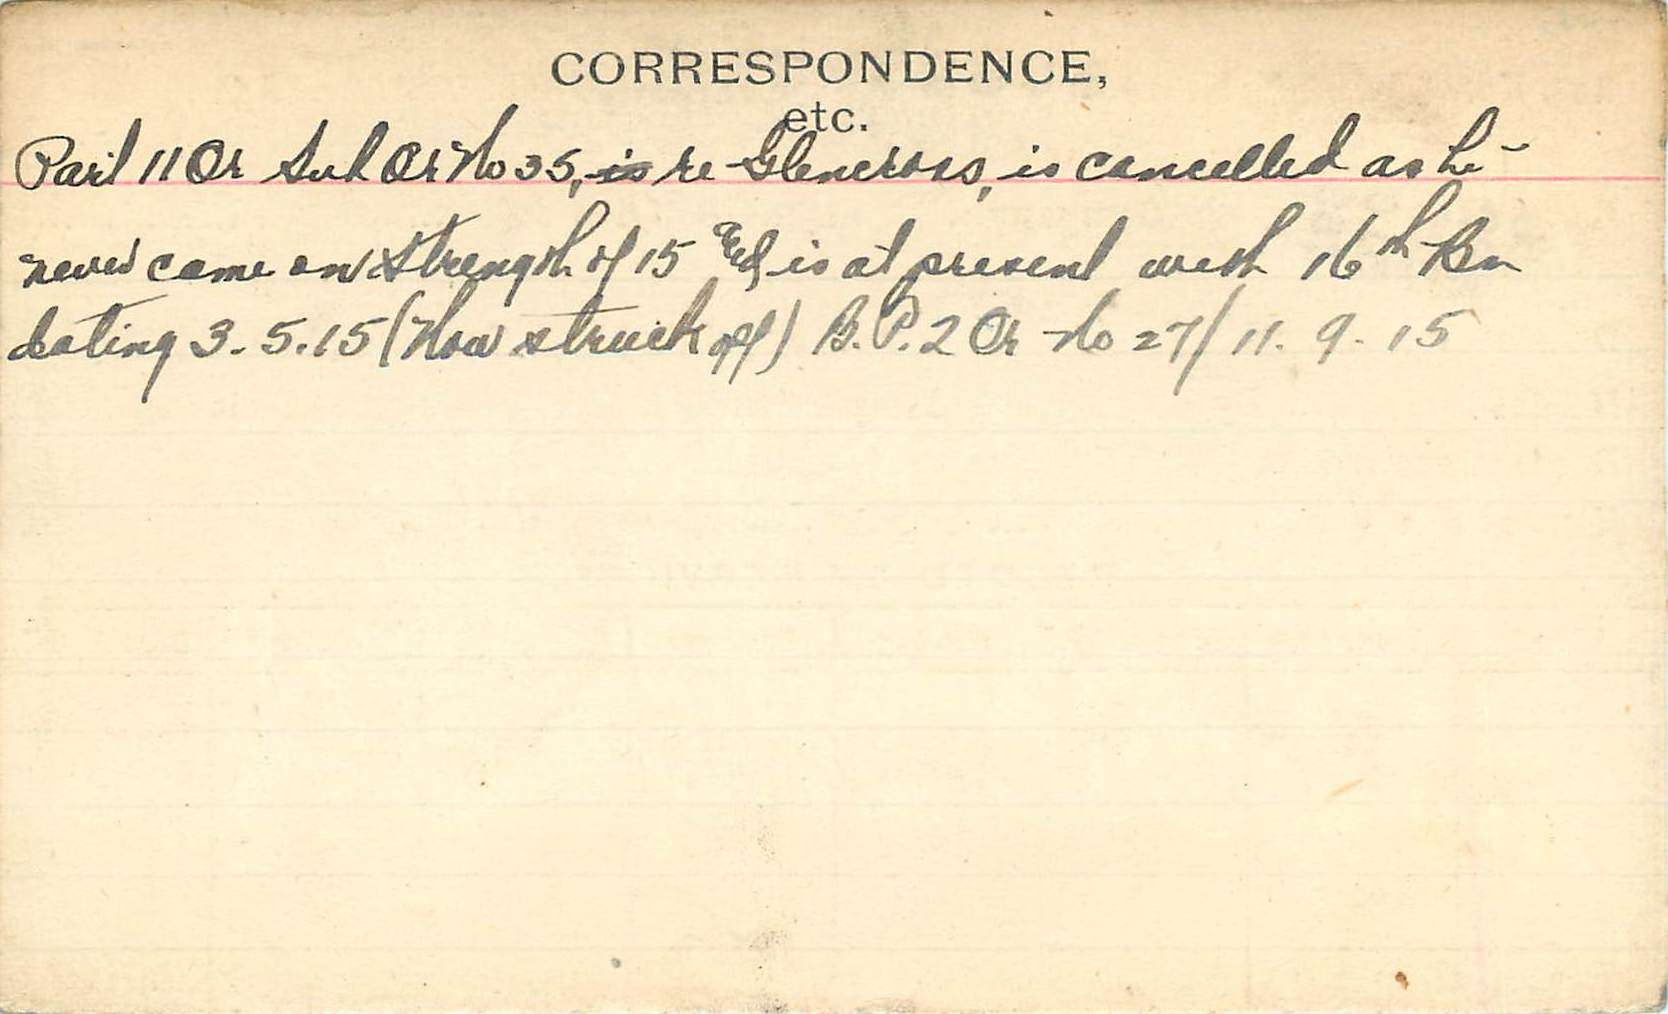 CORRESPONDENCE,
etc.
Part 11 Or Sub Or No 35, is re Glencross, is cancelled as he
never came on strength of 15 & is at present with 16th Bn
dating 3.5.15 (Now struck off) B.P.2 Or No 27/11.9.15